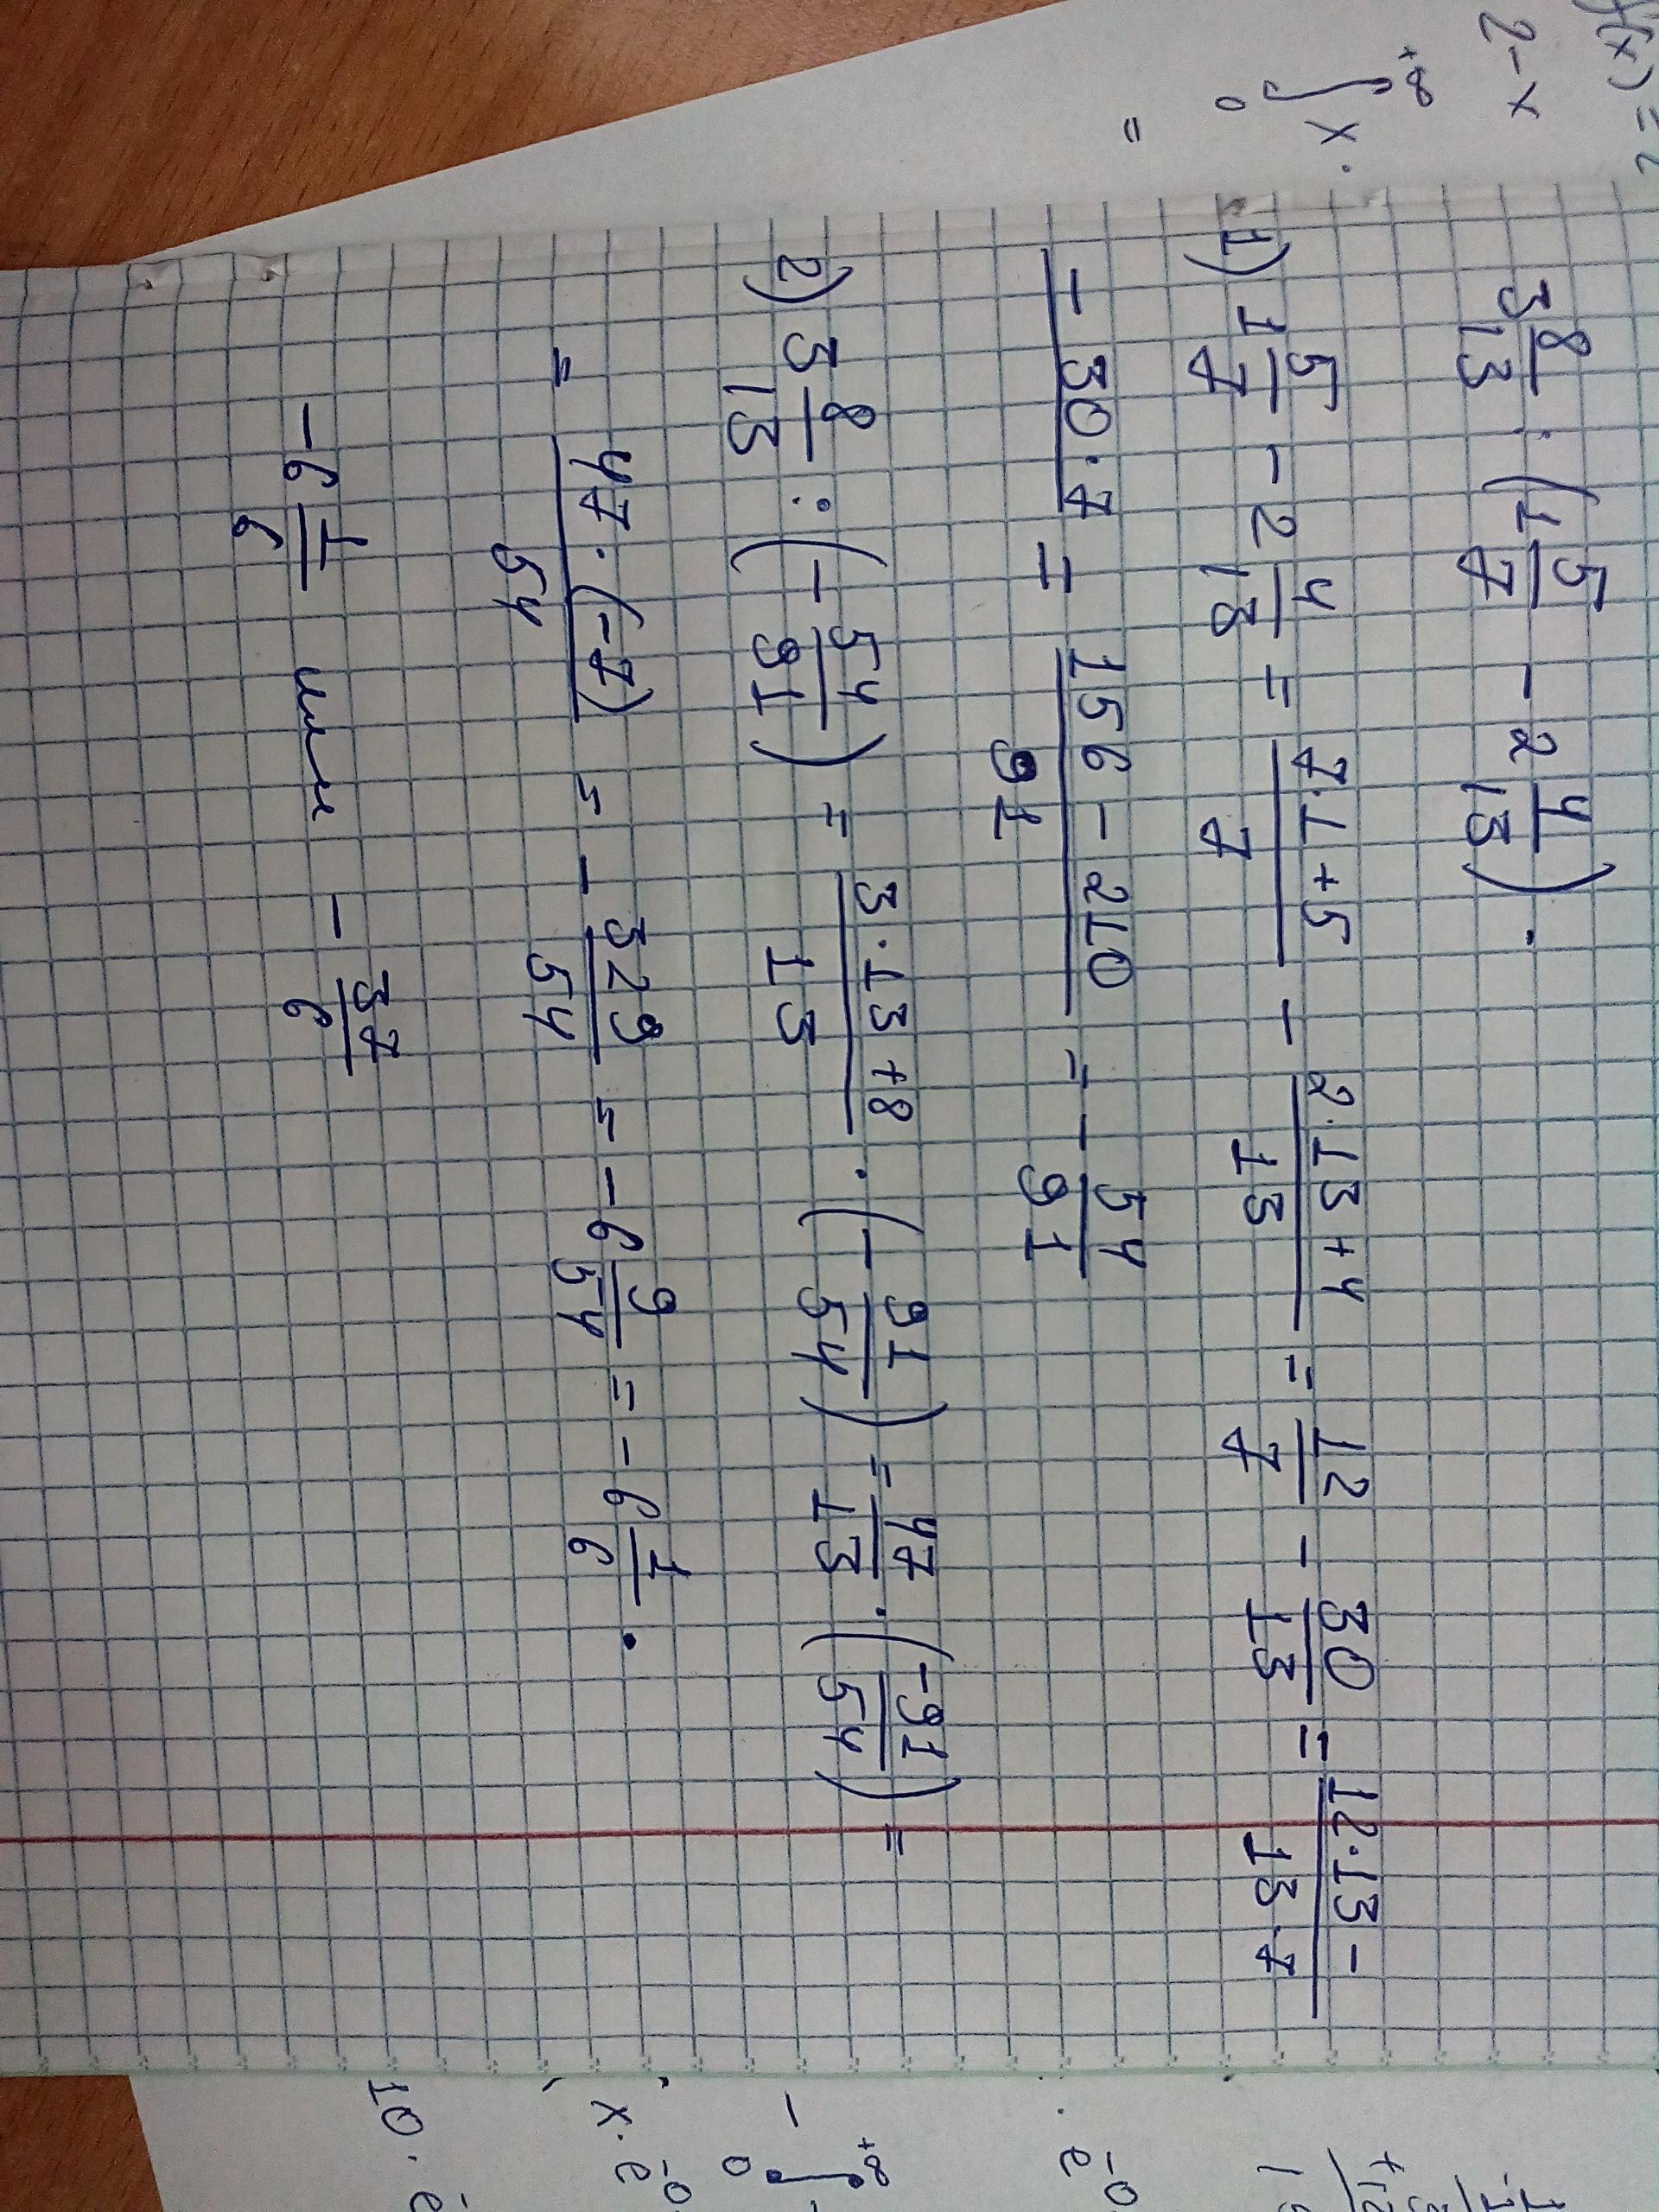 3 8/13 : (1 5/7 - 2 4/13).
1) 1 5/7 - 2 4/13 = (7·1+5)/7 - (2·13+4)/13 = 12/7 - 30/13 = (12·13 -)/(13·7)
- 30·7 = (156 - 210)/91 = - 54/91
2) 3 8/13 : (- 54/91) = (3·13+8)/13 · (- 91/54) = 47/13 · (-91/54) =
= (47·(-7))/54 = - 329/54 = - 6 9/54 = - 6 1/6.
- 6 1/6 или - 37/6
f(x) =
2-x
+∞
∫ x·
0
=
· e
-0
- ∫
+∞
0
x·e
-0
10·e